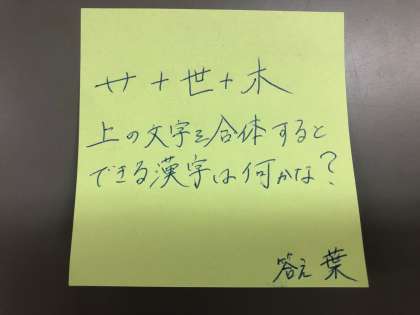 艹+世+木
上の文字を合体すると
できる漢字は何かな?
答え 葉